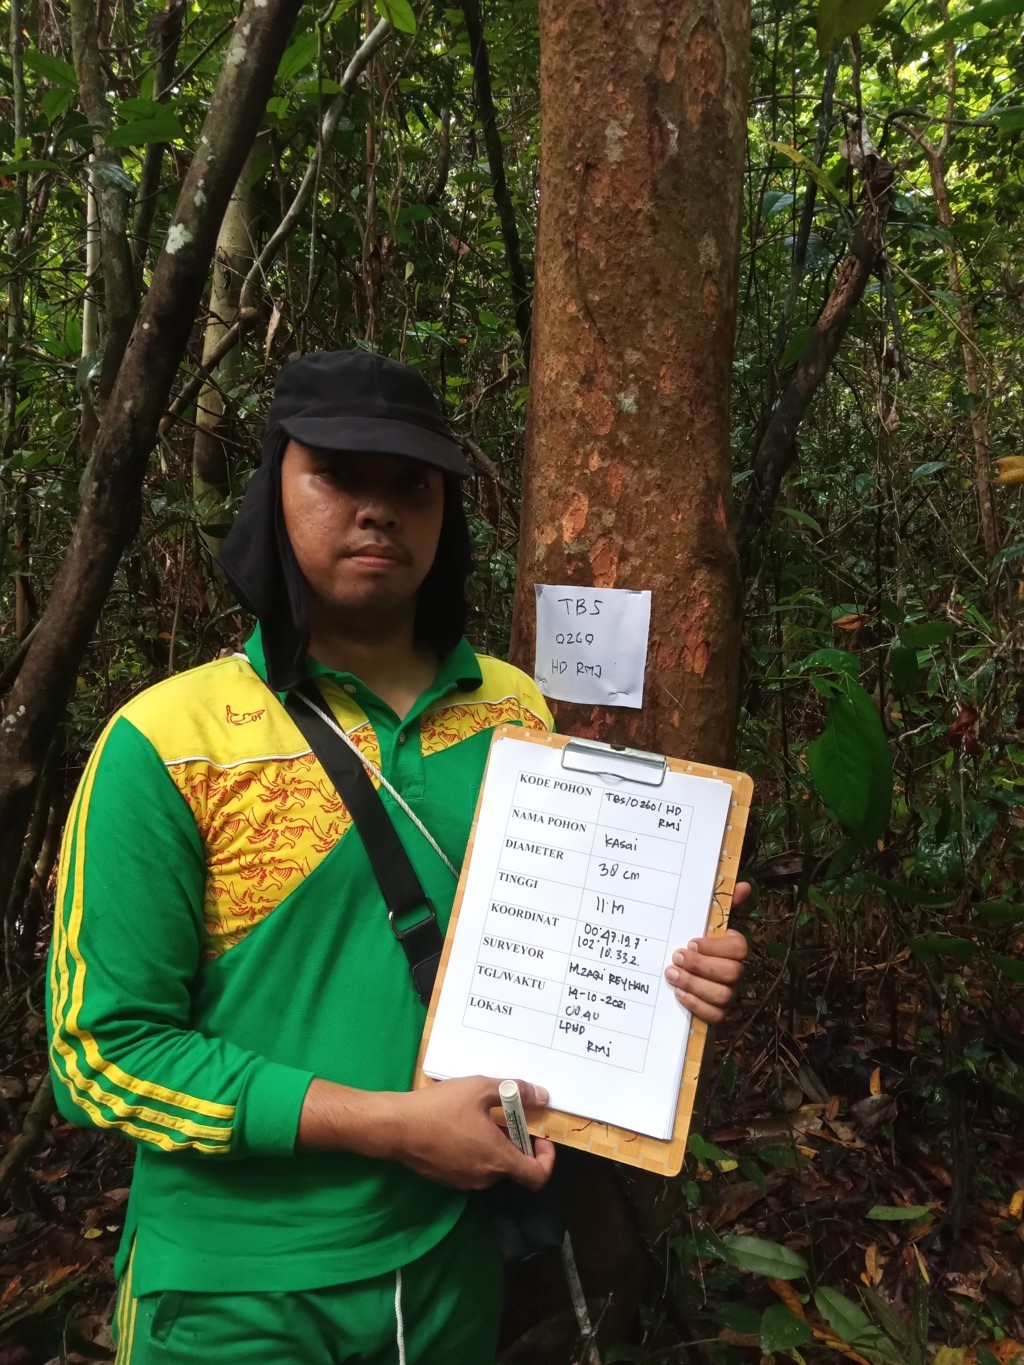 TBS
0260
HD RMJ
KODE POHON TBS/0260/HD
RMJ
NAMA POHON KASAI
DIAMETER 38 cm
TINGGI 11 M
KOORDINAT 00°47.19.7'
102°10.33.2.
SURVEYOR M.ZAQI REYHAN
TGL/WAKTU 14-10-2021
LOKASI LPHD
RMJ